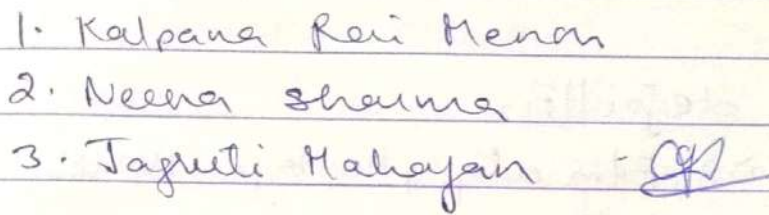 1. Kalpana Rai Menon
2. Neena Sharma
3. Jagruti Mahajan -